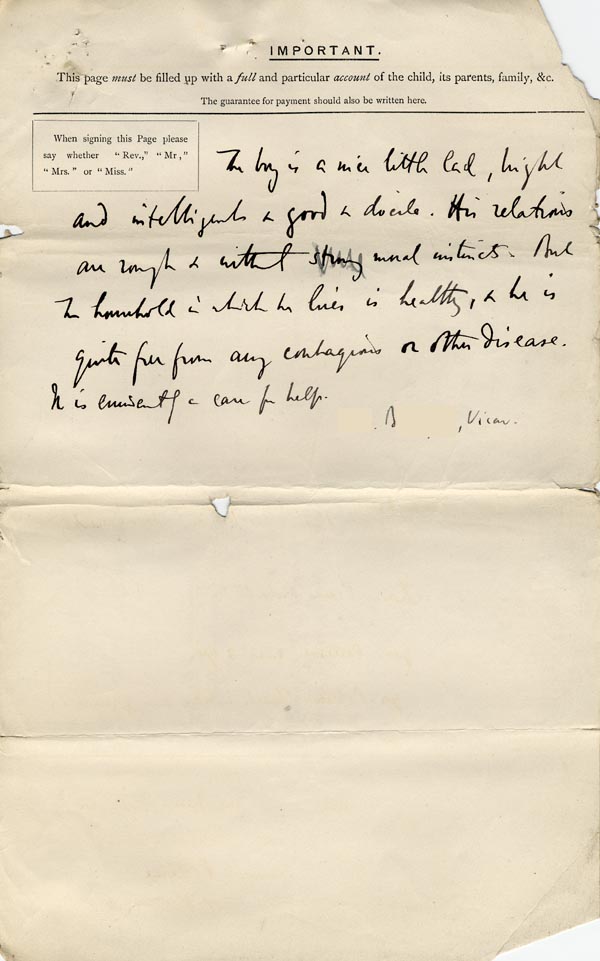 IMPORTANT.
This page must be filled up with a full and particular account of the child, its parents, family, &c.
The guarantee for payment should also be written here.
When signing this Page please
say whether "Rev.," "Mr,"
"Mrs." or "Miss."
The boy is a nice little lad, bright
and intelligent & good & docile. His relations
are rough & without strong moral instincts. But
the household in which he lives is healthy, & he is
quite free from any contagious or other disease.
It is eminently a case for help.
B , Vicar.